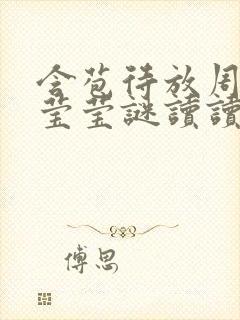 含苞待放周
莹莹謎讀讀
傅思